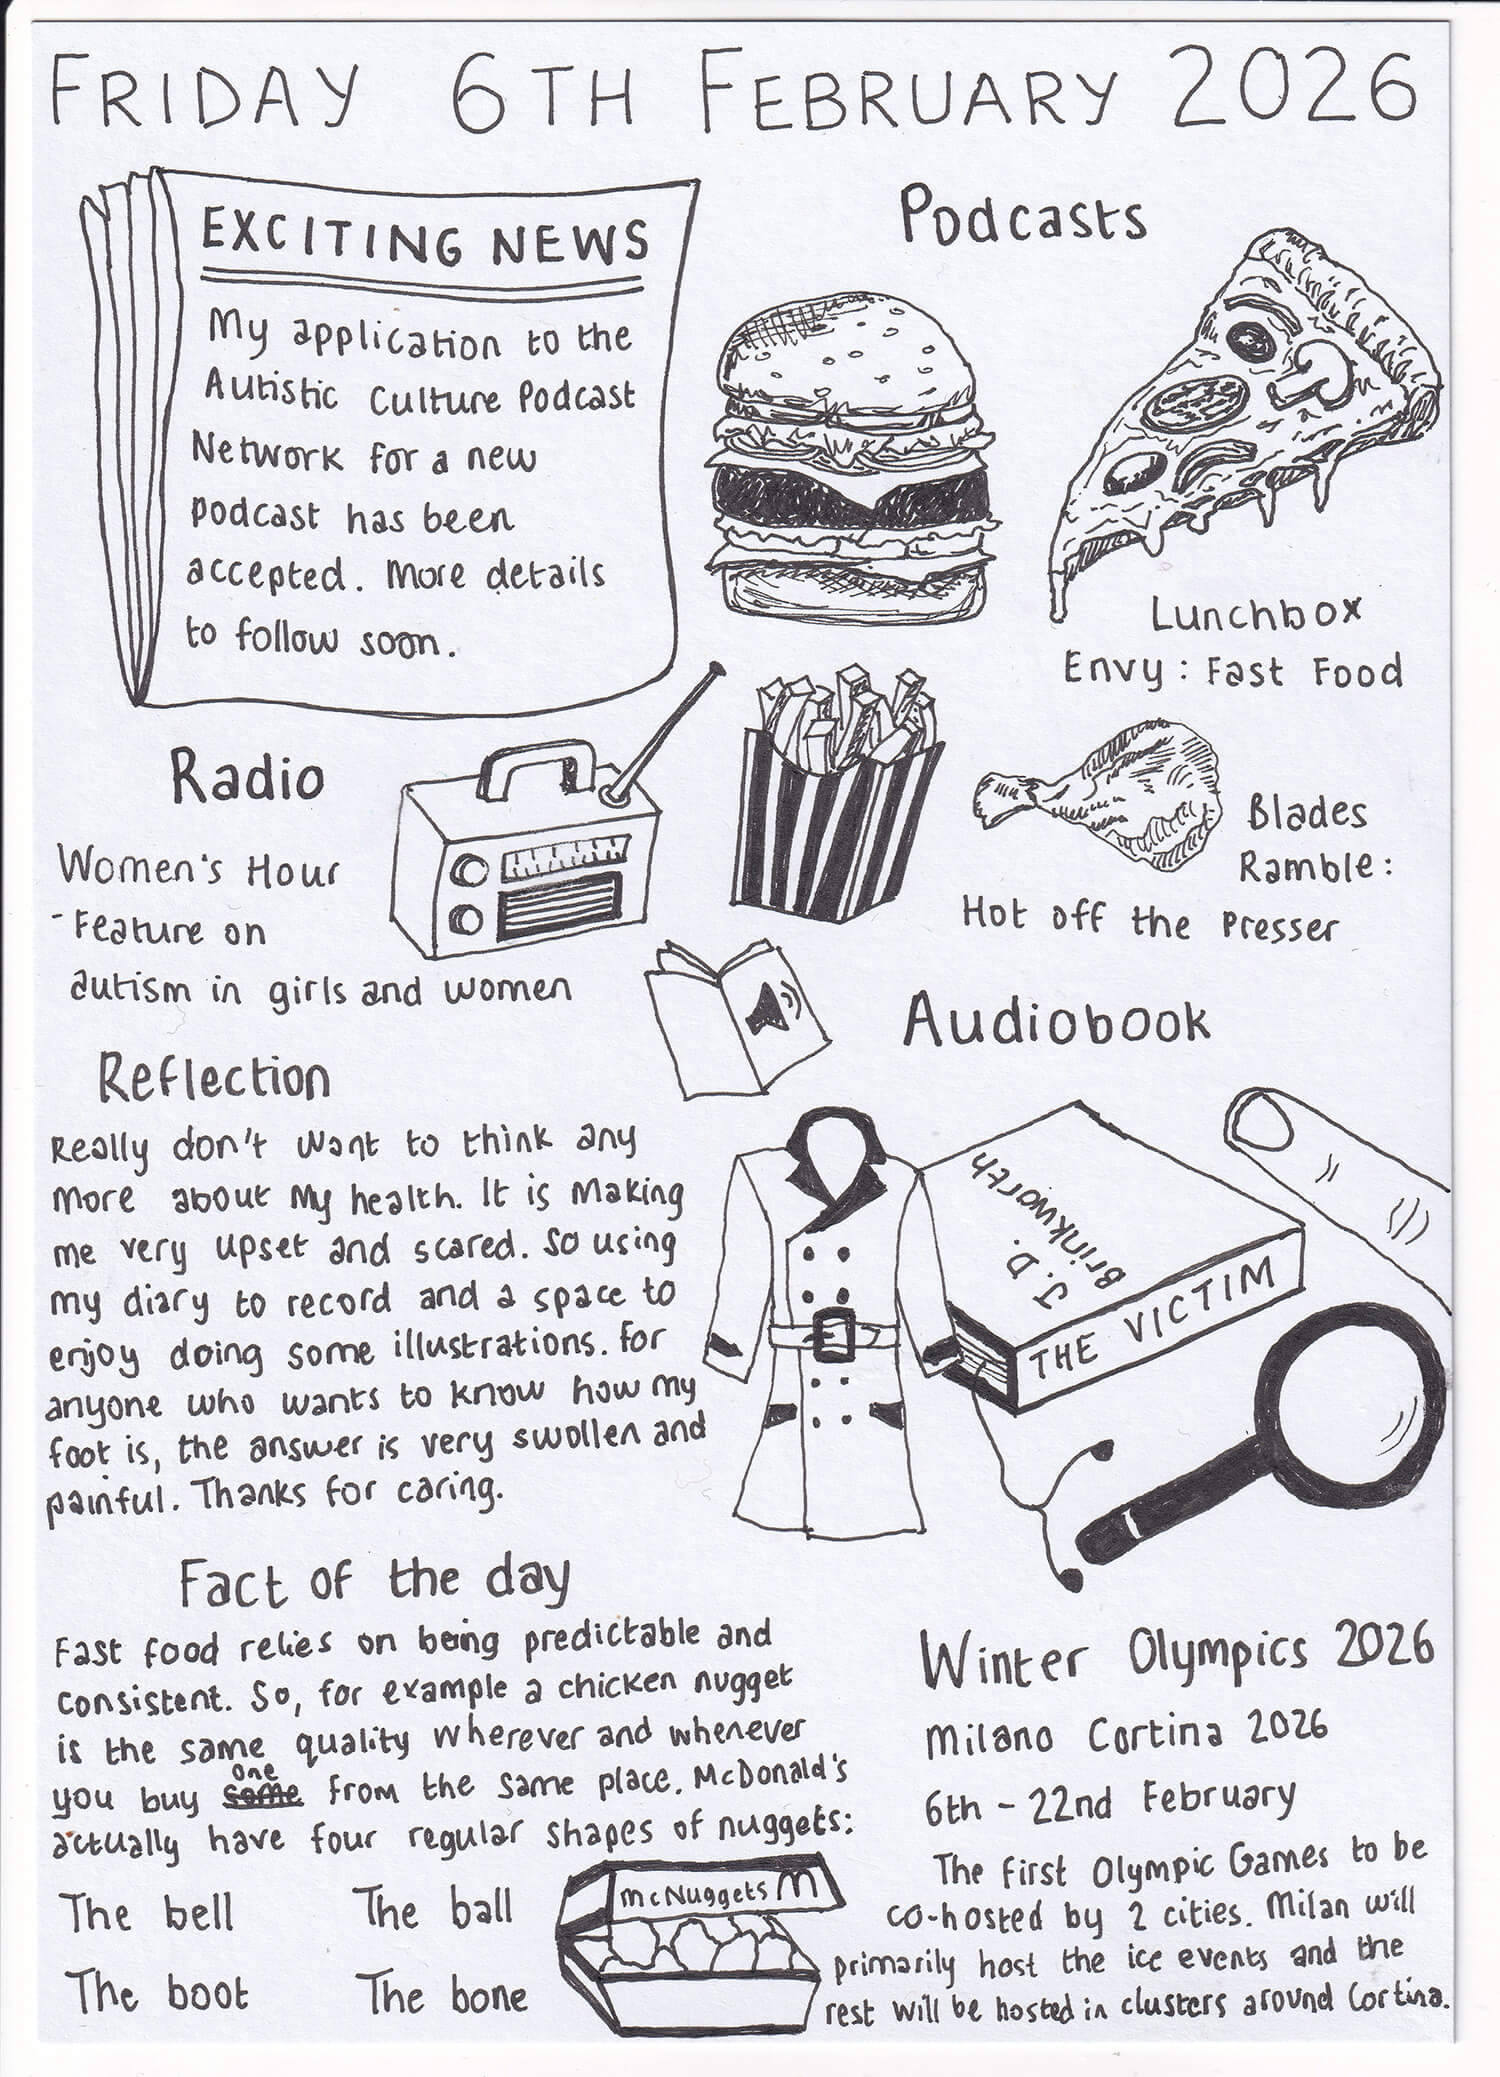 FRIDAY 6TH FEBRUARY 2026
EXCITING NEWS
My application to the
Autistic Culture Podcast
Network for a new
podcast has been
accepted. More details
to follow soon.
Podcasts
Lunchbox
Envy: Fast Food
Blades
Ramble:
Hot off the Presser
Radio
Women's Hour
- Feature on
autism in girls and women
Audiobook
J.D.
Brinkworth
THE VICTIM
Reflection
Really don't want to think any
more about my health. It is making
me very upset and scared. So using
my diary to record and a space to
enjoy doing some illustrations. For
anyone who wants to know how my
foot is, the answer is very swollen and
painful. Thanks for caring.
Fact of the day
Fast food relies on being predictable and
consistent. So, for example a chicken nugget
is the same quality wherever and whenever
you buy some one from the same place. McDonald's
actually have four regular shapes of nuggets:
The bell The ball
The boot The bone
McNuggets M
Winter Olympics 2026
Milano Cortina 2026
6th - 22nd February
The first Olympic Games to be
co-hosted by 2 cities. Milan will
primarily host the ice events and the
rest will be hosted in clusters around Cortina.